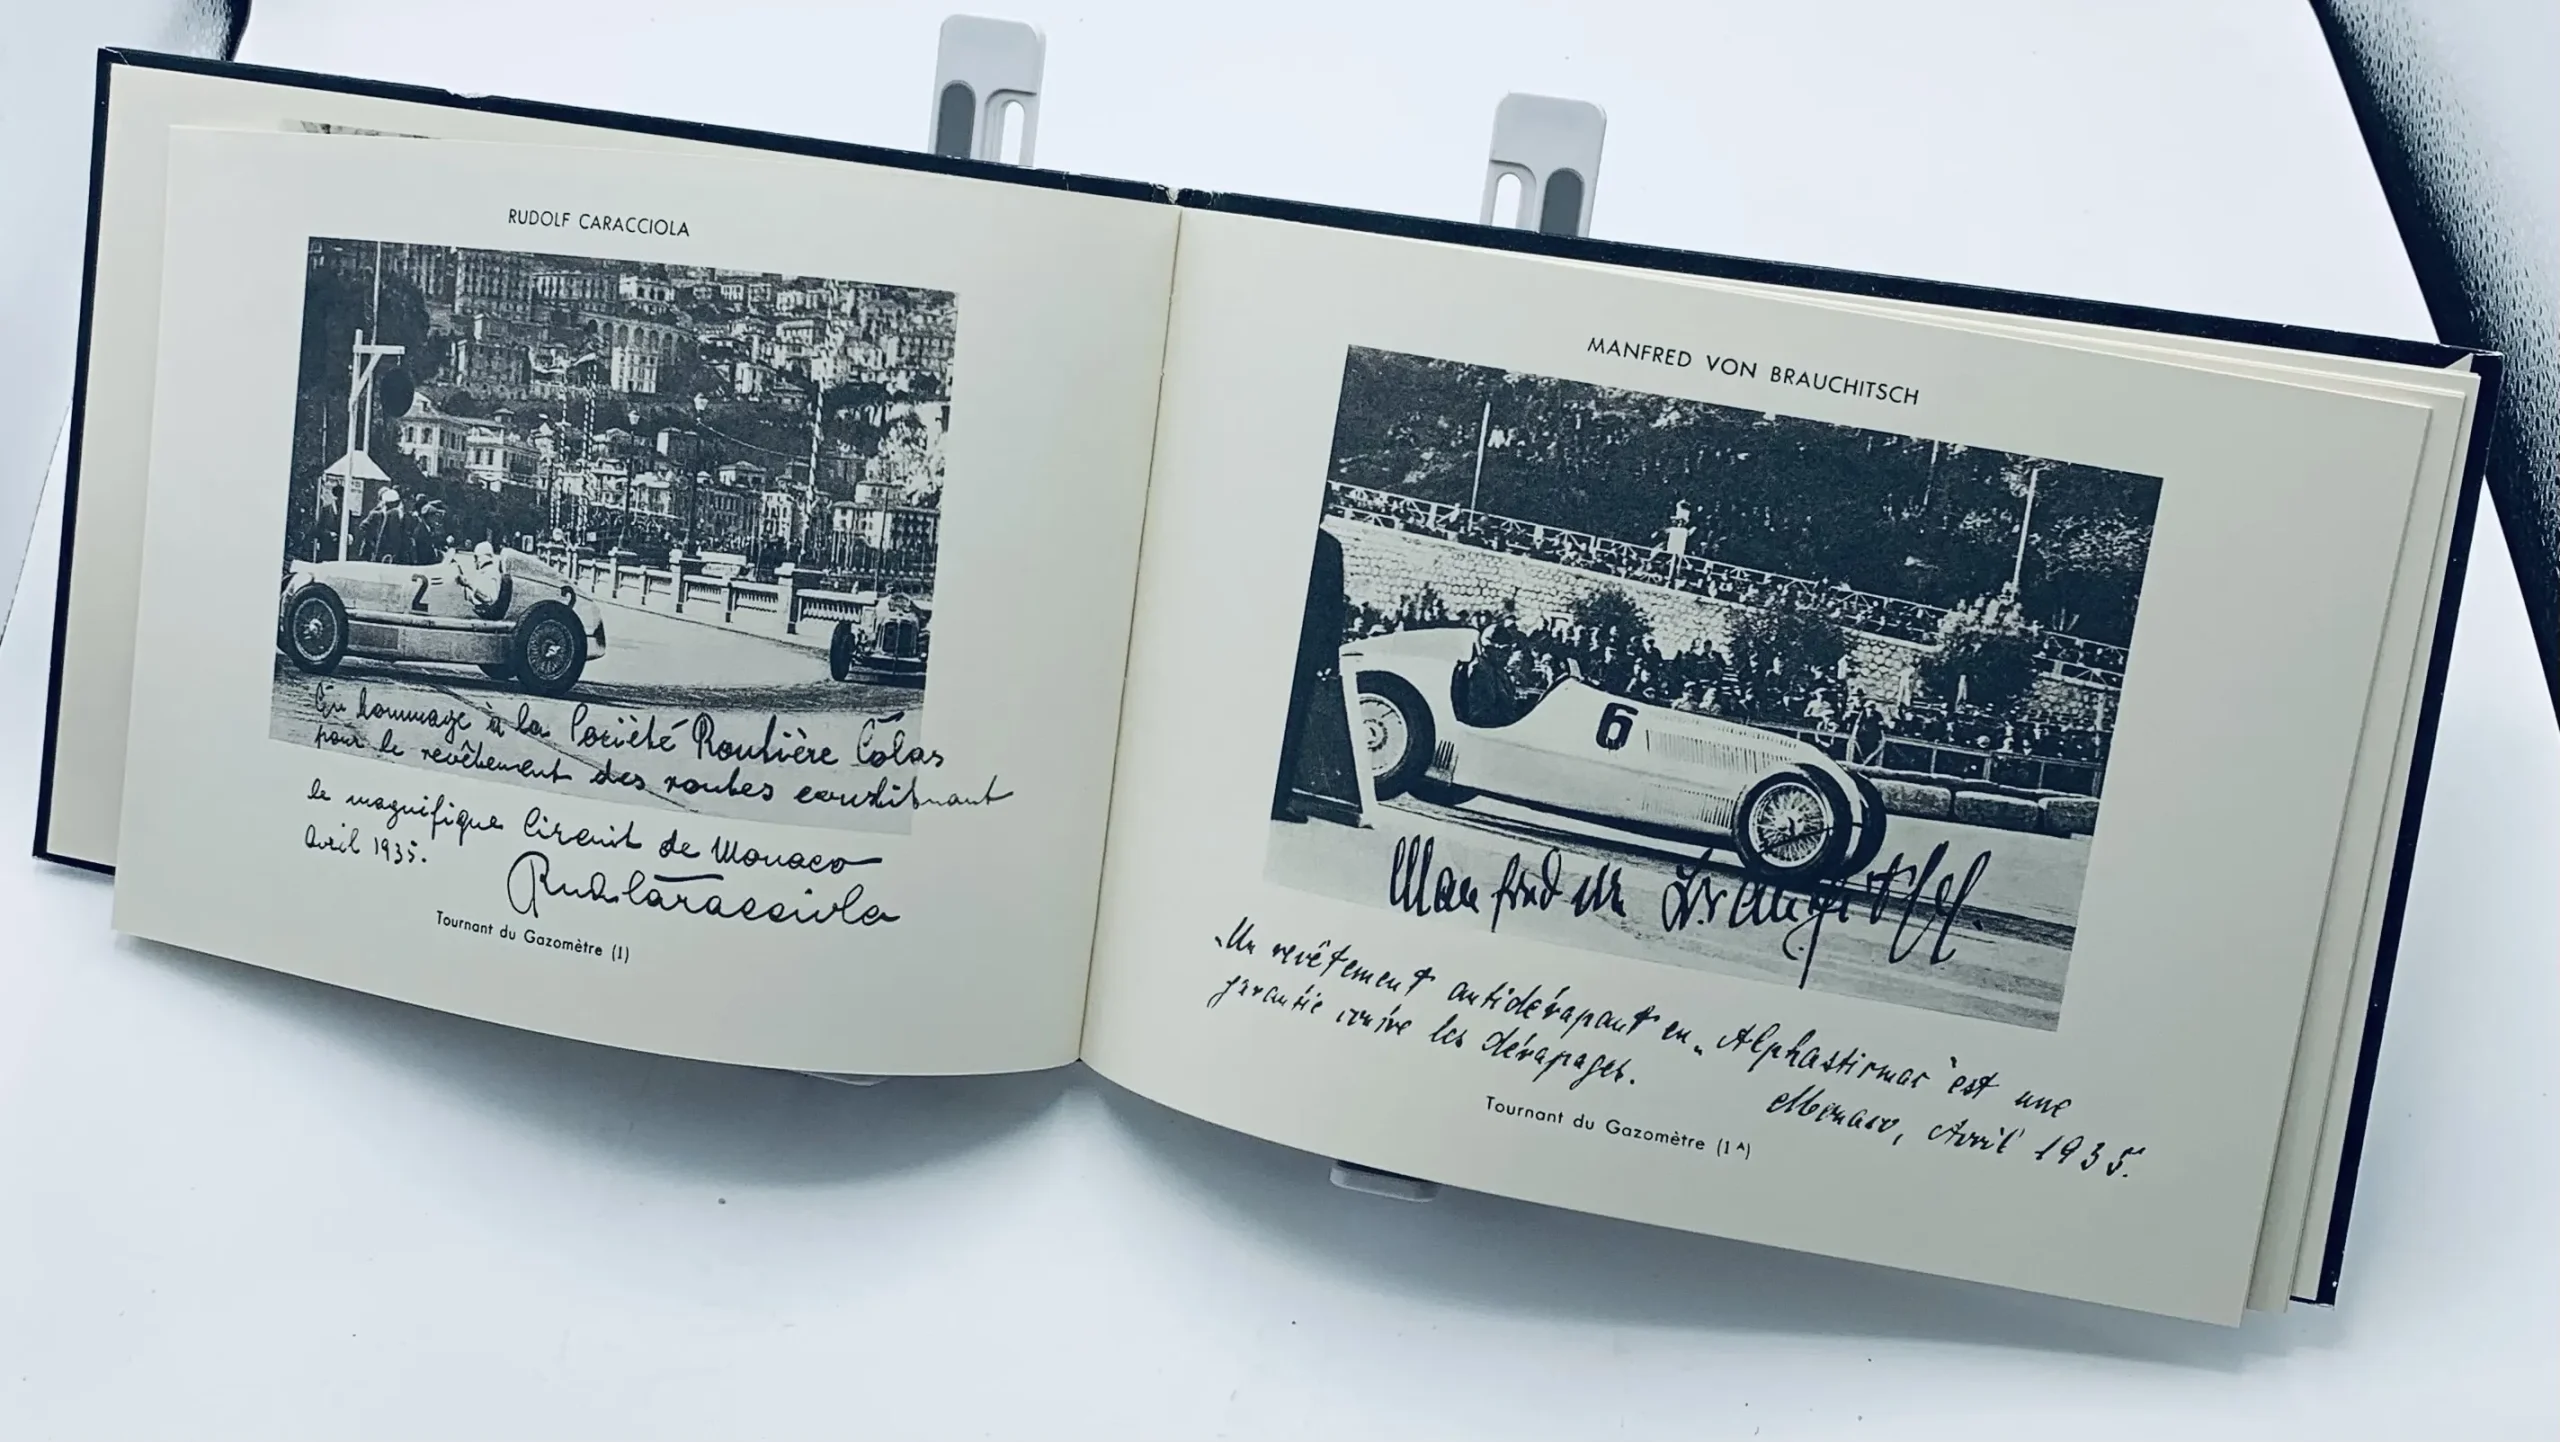 RUDOLF CARACCIOLA
2
En hommage à la Société Routière Colas
pour le revêtement des routes constituant
le magnifique Circuit de Monaco
Avril 1935.
Rud. Caracciola
Tournant du Gazomètre (1)
MANFRED VON BRAUCHITSCH
6
Manfred von Brauchitsch.
„Un revêtement antidérapant en „Alphastirmac" est une
garantie contre les dérapages.
Monaco, Avril 1935."
Tournant du Gazomètre (1 A)